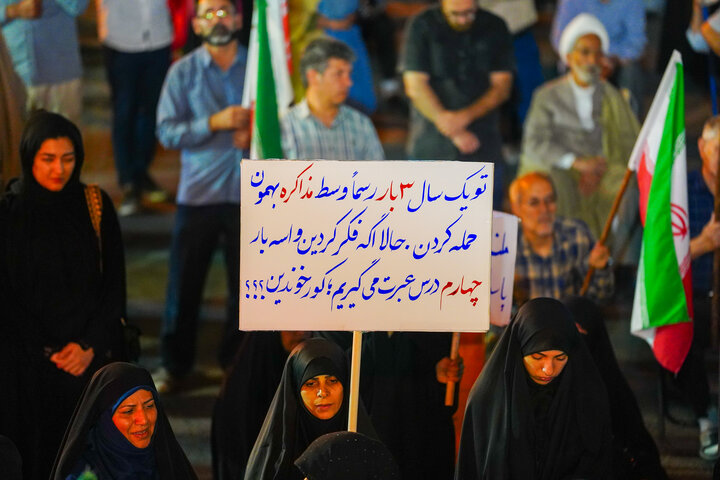 تو یک سال ۳ بار رسماً وسط مذاکره بهمون
حمله کردن. حالا اگه فکر کردین واسه بار
چهارم درس عبرت می گیریم؛ کور خوندین؟؟؟